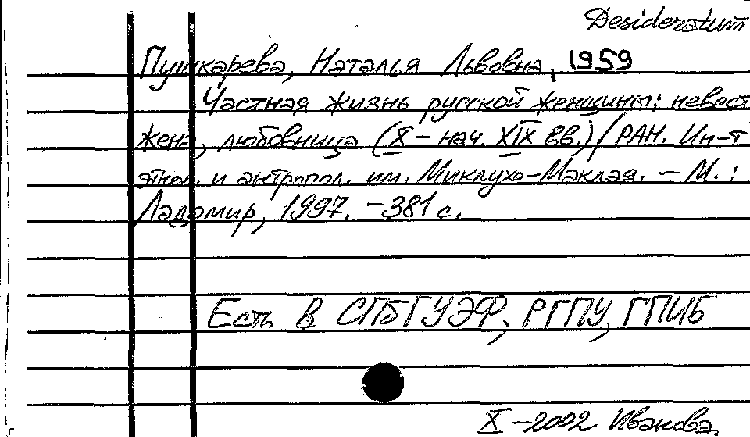 Desideratum
Пушкарева, Наталья Львовна, 1959
Частная жизнь русской женщины: невест
жена, любовница (X – нач. XIX вв.) / РАН. Ин-т
этнол. и антропол. им. Миклухо-Маклая. – М. :
Ладомир, 1997. – 381 с.
Есть в СПбГУЭФ, РГПУ, ГПИБ
X – 2002 Иванова